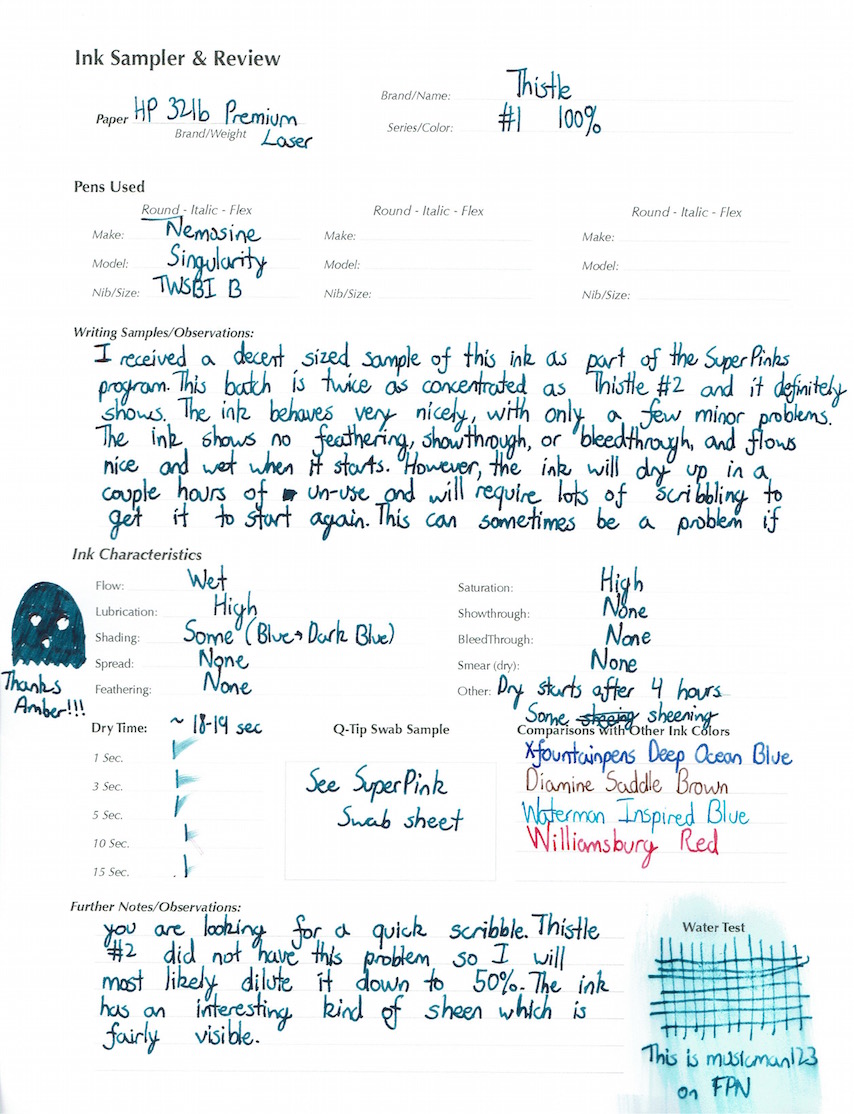 Ink Sampler & Review
Paper HP 32lb Premium Laser
Brand/Weight
Brand/Name: Thistle
Series/Color: #1 100%
Pens Used
Round - Italic - Flex
Make: Nemosine
Model: Singularity
Nib/Size: TWSBI B
Round - Italic - Flex
Make:
Model:
Nib/Size:
Round - Italic - Flex
Make:
Model:
Nib/Size:
Writing Samples/Observations:
I received a decent sized sample of this ink as part of the SuperPinks
program. This batch is twice as concentrated as Thistle #2 and it definitely
shows. The ink behaves very nicely, with only a few minor problems.
The ink shows no feathering, showthrough, or bleedthrough, and flows
nice and wet when it starts. However, the ink will dry up in a
couple hours of un-use and will require lots of scribbling to
get it to start again. This can sometimes be a problem if
Ink Characteristics
Flow: Wet
Lubrication: High
Shading: Some (Blue→Dark Blue)
Spread: None
Feathering: None
Saturation: High
Showthrough: None
BleedThrough: None
Smear (dry): None
Other: Dry starts after 4 hours
Some sheeing sheening
Thanks
Amber!!!
Dry Time: ~ 18-19 sec
1 Sec.
3 Sec.
5 Sec.
10 Sec.
15 Sec.
Q-Tip Swab Sample
See SuperPink
Swab sheet
Comparisons with Other Ink Colors
Xfountainpens Deep Ocean Blue
Diamine Saddle Brown
Waterman Inspired Blue
Williamsburg Red
Further Notes/Observations:
you are looking for a quick scribble. Thistle
#2 did not have this problem so I will
most likely dilute it down to 50%. The ink
has an interesting kind of sheen which is
fairly visible.
Water Test
This is musicman123
on FPN